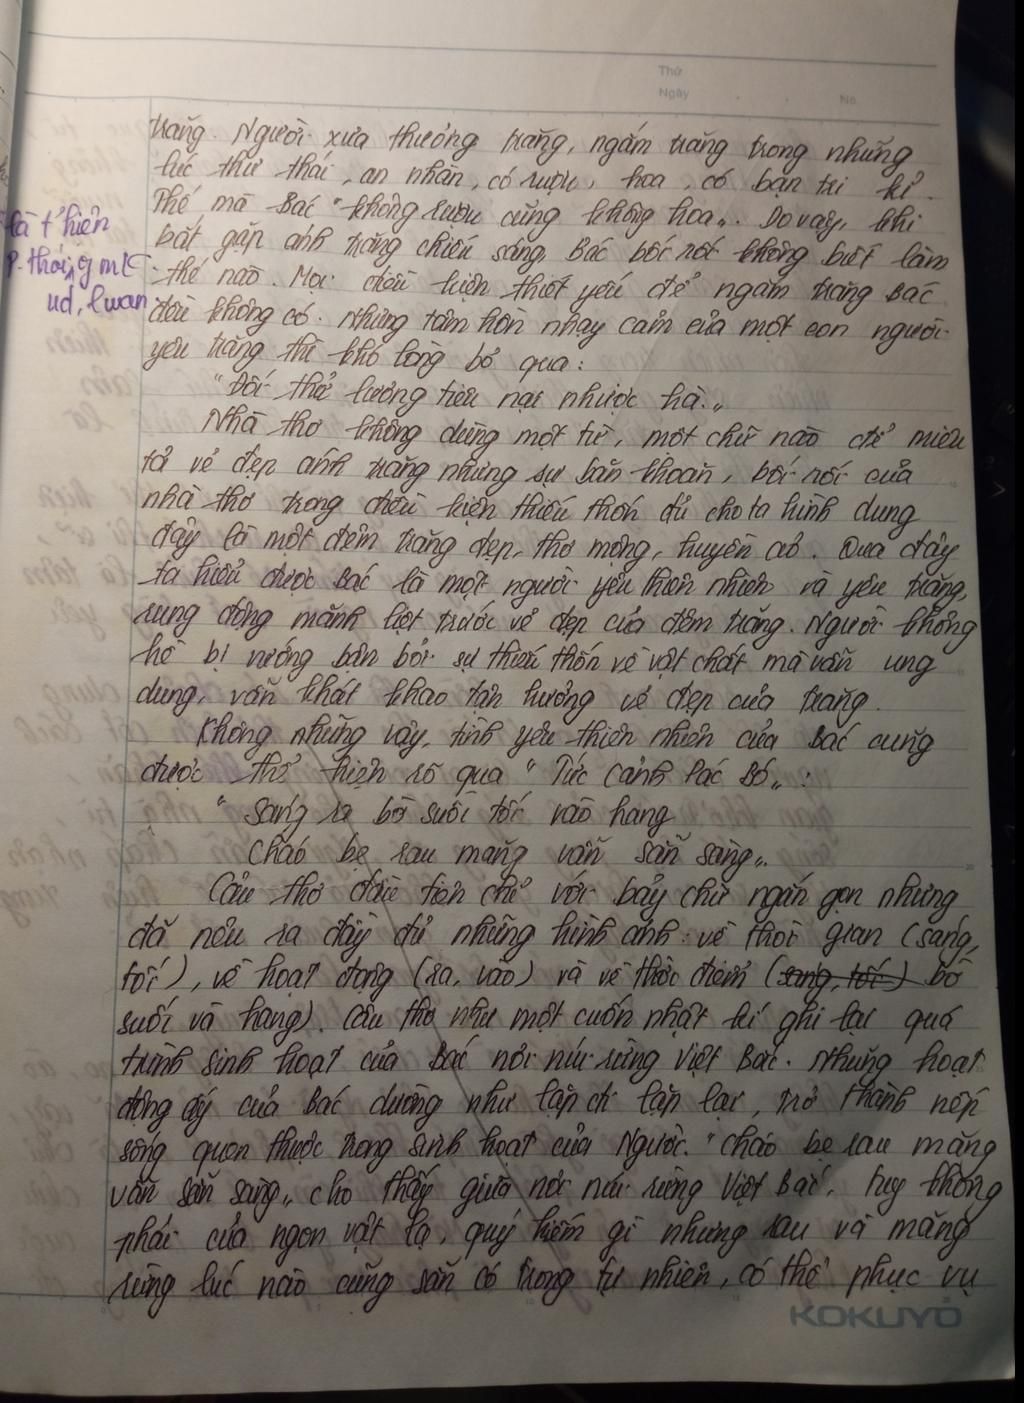 Thứ
Ngày
No
trăng. Người xưa thưởng trăng, ngắm trăng trong những
lúc thư thái, an nhàn, có rượu, hoa, có bạn tri kỉ.
Thế mà Bác "không rượu cũng không hoa". Do vậy, khi
bắt gặp ánh trăng chiếu sáng, Bác bối rối không biết làm
thế nào. Mọi điều kiện thiết yếu để ngắm trăng Bác
đều không có. Nhưng tâm hồn nhạy cảm của một con người
yêu trăng thì khó lòng bỏ qua:
"Đối thử lương tiêu nại nhược hà."
Nhà thơ không dùng một từ, một chữ nào để miêu
tả vẻ đẹp ánh trăng nhưng sự băn khoăn, bối rối của
nhà thơ trong điều kiện thiếu thốn đủ cho ta hình dung
đây là một đêm trăng đẹp, thơ mộng, huyền ảo. Qua đây
ta hiểu được Bác là một người yêu thiên nhiên và yêu trăng,
rung động mãnh liệt trước vẻ đẹp của đêm trăng. Người không
hề bị vướng bận bởi sự thiếu thốn về vật chất mà vẫn ung
dung, vẫn khát khao tận hưởng vẻ đẹp của trăng.
Không những vậy, tình yêu thiên nhiên của Bác cũng
được thể hiện rõ qua "Tức cảnh Pác Bó":
"Sáng ra bờ suối tối vào hang
Cháo bẹ rau măng vẫn sẵn sàng".
Câu thơ đầu tiên chỉ với bảy chữ ngắn gọn nhưng
đã nêu ra đầy đủ những hình ảnh: về thời gian (sáng,
tối), về hoạt động (ra, vào) và về thời điểm (sáng, tối) bờ
suối và hang). Câu thơ như một cuốn nhật kí ghi lại quá
trình sinh hoạt của Bác nơi núi rừng Việt Bắc. Những hoạt
động ấy của Bác dường như lặp đi lặp lại, trở thành nếp
sống quen thuộc trong sinh hoạt của Người. "Cháo bẹ rau măng
vẫn sẵn sàng" cho thấy giữa nơi núi rừng Việt Bắc, tuy không
phải của ngon vật lạ, quý hiếm gì nhưng rau và măng
rừng lúc nào cũng sẵn có trong tự nhiên, có thể phục vụ
KOKUYO